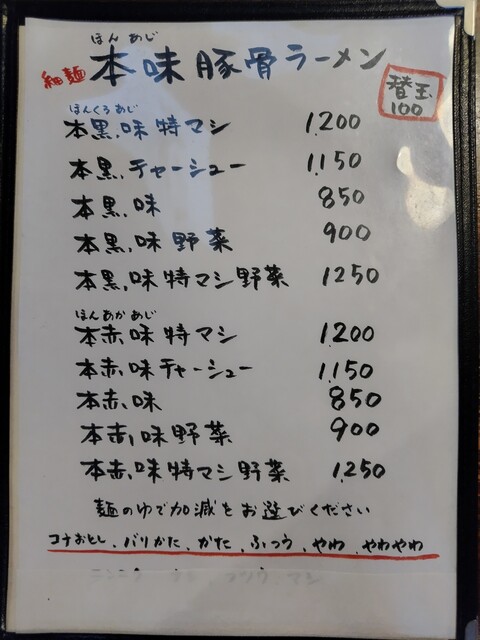 ほん あじ
細麺 本味 豚骨ラーメン
替玉
100
ほんくろあじ
本黒味特マシ 1,200
本黒チャーシュー 1,150
本黒味 850
本黒味野菜 900
本黒味特マシ野菜 1250
ほんあかあじ
本赤味特マシ 1,200
本赤味チャーシュー 1,150
本赤味 850
本赤味野菜 900
本赤味特マシ野菜 1,250
麺のゆで加減をお選びください
コナおとし、バリかた、かた、ふつう、やわ、やわやわ